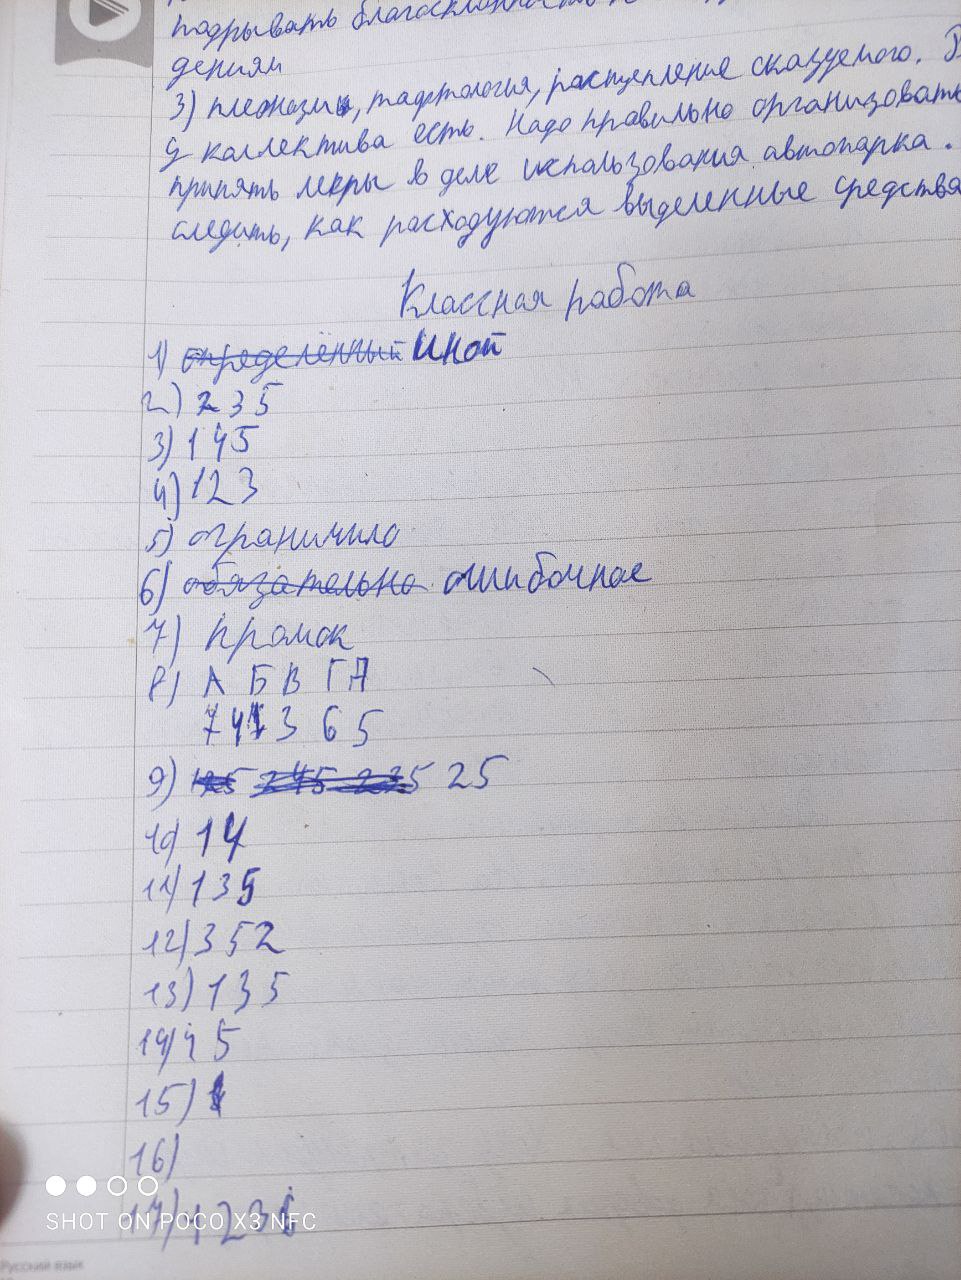 подрывать благосклонность к
дениям
3) плеоназм, тавтология, расщепление сказуемого. В
у коллектива есть. Надо правильно организовать
принять меры в деле использования автопарка.
следить, как расходуются выделенные средства
Классная работа
1) определённый иной
2) 235
3) 145
4) 123
5) ограничило
6) обязательно ошибочное
7) промок
8) А Б В Г Д
7 4 3 6 5
9) 245 235 25
10) 14
11) 135
12) 352
13) 135
14) 45
15) 1
16)
17) 123
SHOT ON POCO X3 NFC
Русский язык